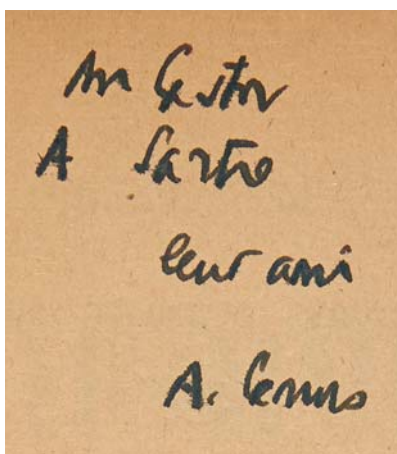 Au Castor
A Sartre
leur ami
A. Camus